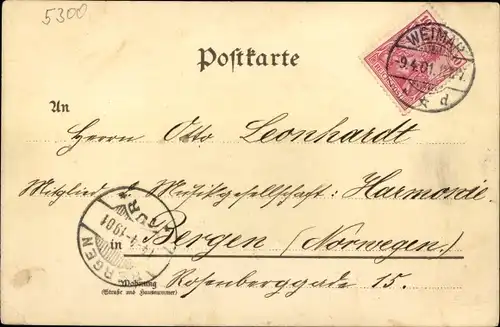 5300
Postkarte
WEIMAR
-9.4.01.
d
An
Herrn Otto Leonhardt
Mitglied d. Musikgesellschaft: Harmonie
in Bergen (Norwegen.)
BERGEN
4-1901
Wohnung
(Straße und Hausnummer)
Rosenberggade 15.